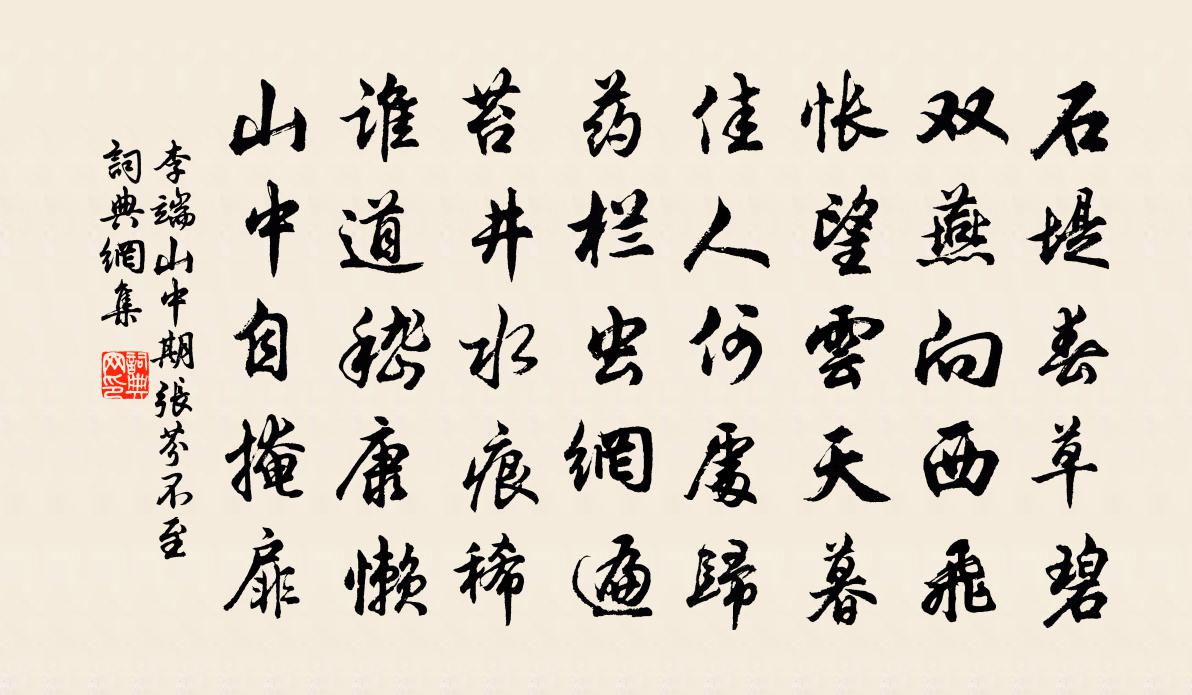 石堤春草碧
双燕向西飛
怅望雲天暮
佳人何處歸
药栏虫網遍
苔井水痕稀
谁道嵇康懒
山中自掩扉
李端山中期張芬不至
詞典網集
詞典网印